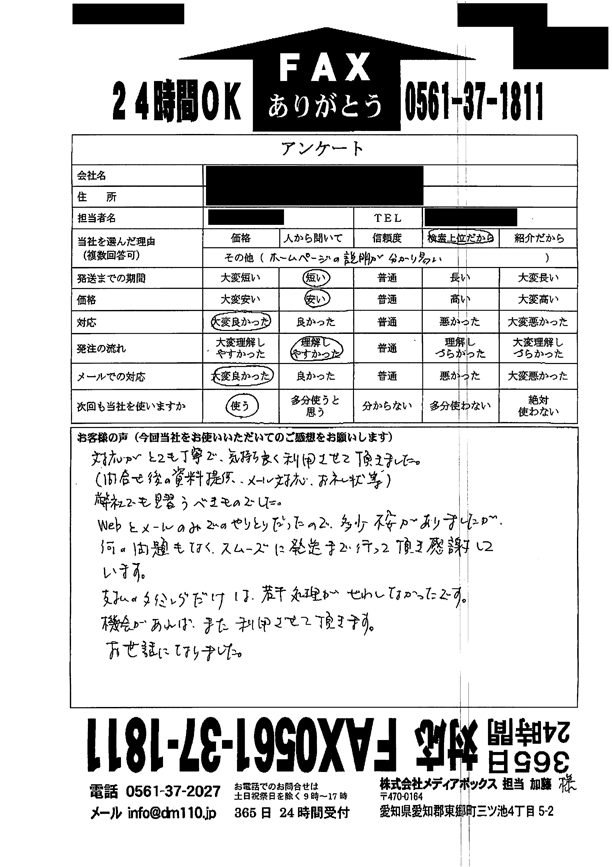 FAX
ありがとう
24時間OK 0561-37-1811
アンケート
会社名
住 所
担当者名 TEL
当社を選んだ理由(複数回答可) 価格 人から聞いて 信頼度 検索上位だから 紹介だから
その他(ホームページの説明が分かり易い)
発送までの期間 大変短い 短い 普通 長い 大変長い
価格 大変安い 安い 普通 高い 大変高い
対応 大変良かった 良かった 普通 悪かった 大変悪かった
発注の流れ 大変理解しやすかった 理解しやすかった 普通 理解しづらかった 大変理解しづらかった
メールでの対応 大変良かった 良かった 普通 悪かった 大変悪かった
次回も当社を使いますか 使う 多分使うと思う 分からない 多分使わない 絶対使わない
お客様の声(今回当社をお使いいただいてのご感想をお願いします)
対応がとても丁寧で、気持ち良く利用させて頂きました。
(問合せ後の資料提供、メール対応、お礼状等)
弊社でも見習うべきものでした。
Webとメールのみでのやりとりだったので、多少不安がありましたが、
何の問題もなく、スムーズに発送まで行って頂き感謝して
います。
支払のタイミングだけは、若干処理がせわしなかったです。
機会があれば、また利用させて頂きます。
お世話になりました。
365日24時間対応 FAX0561-37-1811
電話 0561-37-2027 お電話でのお問合せは土日祝祭日を除く9時〜17時
メール info@dm110.jp 365日24時間受付
株式会社メディアボックス 担当 加藤 様
〒470-0164
愛知県愛知郡東郷町三ツ池4丁目5-2